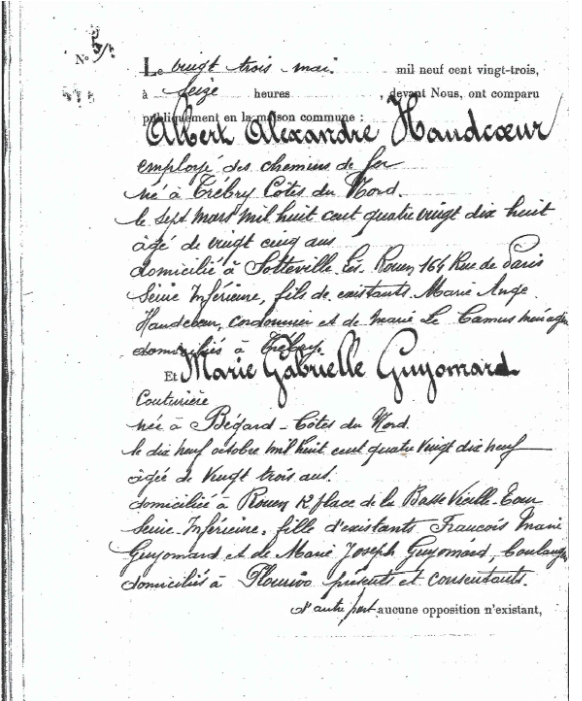 N° 5
Le vingt trois mai mil neuf cent vingt-trois,
à seize heures, devant Nous, ont comparu
publiquement en la maison commune :
Albert Alexandre Haudcœur
employé des chemins de fer
né à Trébry Côtes du Nord.
le sept mars mil huit cent quatre vingt dix huit
âgé de vingt cinq ans
domicilié à Sotteville lès Rouen, 164 Rue de Paris
Seine Inférieure, fils de existants Marie Ange
Haudcœur, cordonnier et de Marie Le Camus ménagère
domiciliés à Trébry.
Et Marie Gabrielle Guyomard
Couturière
née à Bégard - Côtes du Nord.
le dix neuf octobre mil huit cent quatre vingt dix neuf
âgée de vingt trois ans.
domiciliée à Rouen 12 place de la Basse Vieille-Tour
Seine-Inférieure, fille d'existants François Marie
Guyomard et de Marie Joseph Guyomard,
domiciliés à présents et consentants.
d'autre part aucune opposition n'existant,